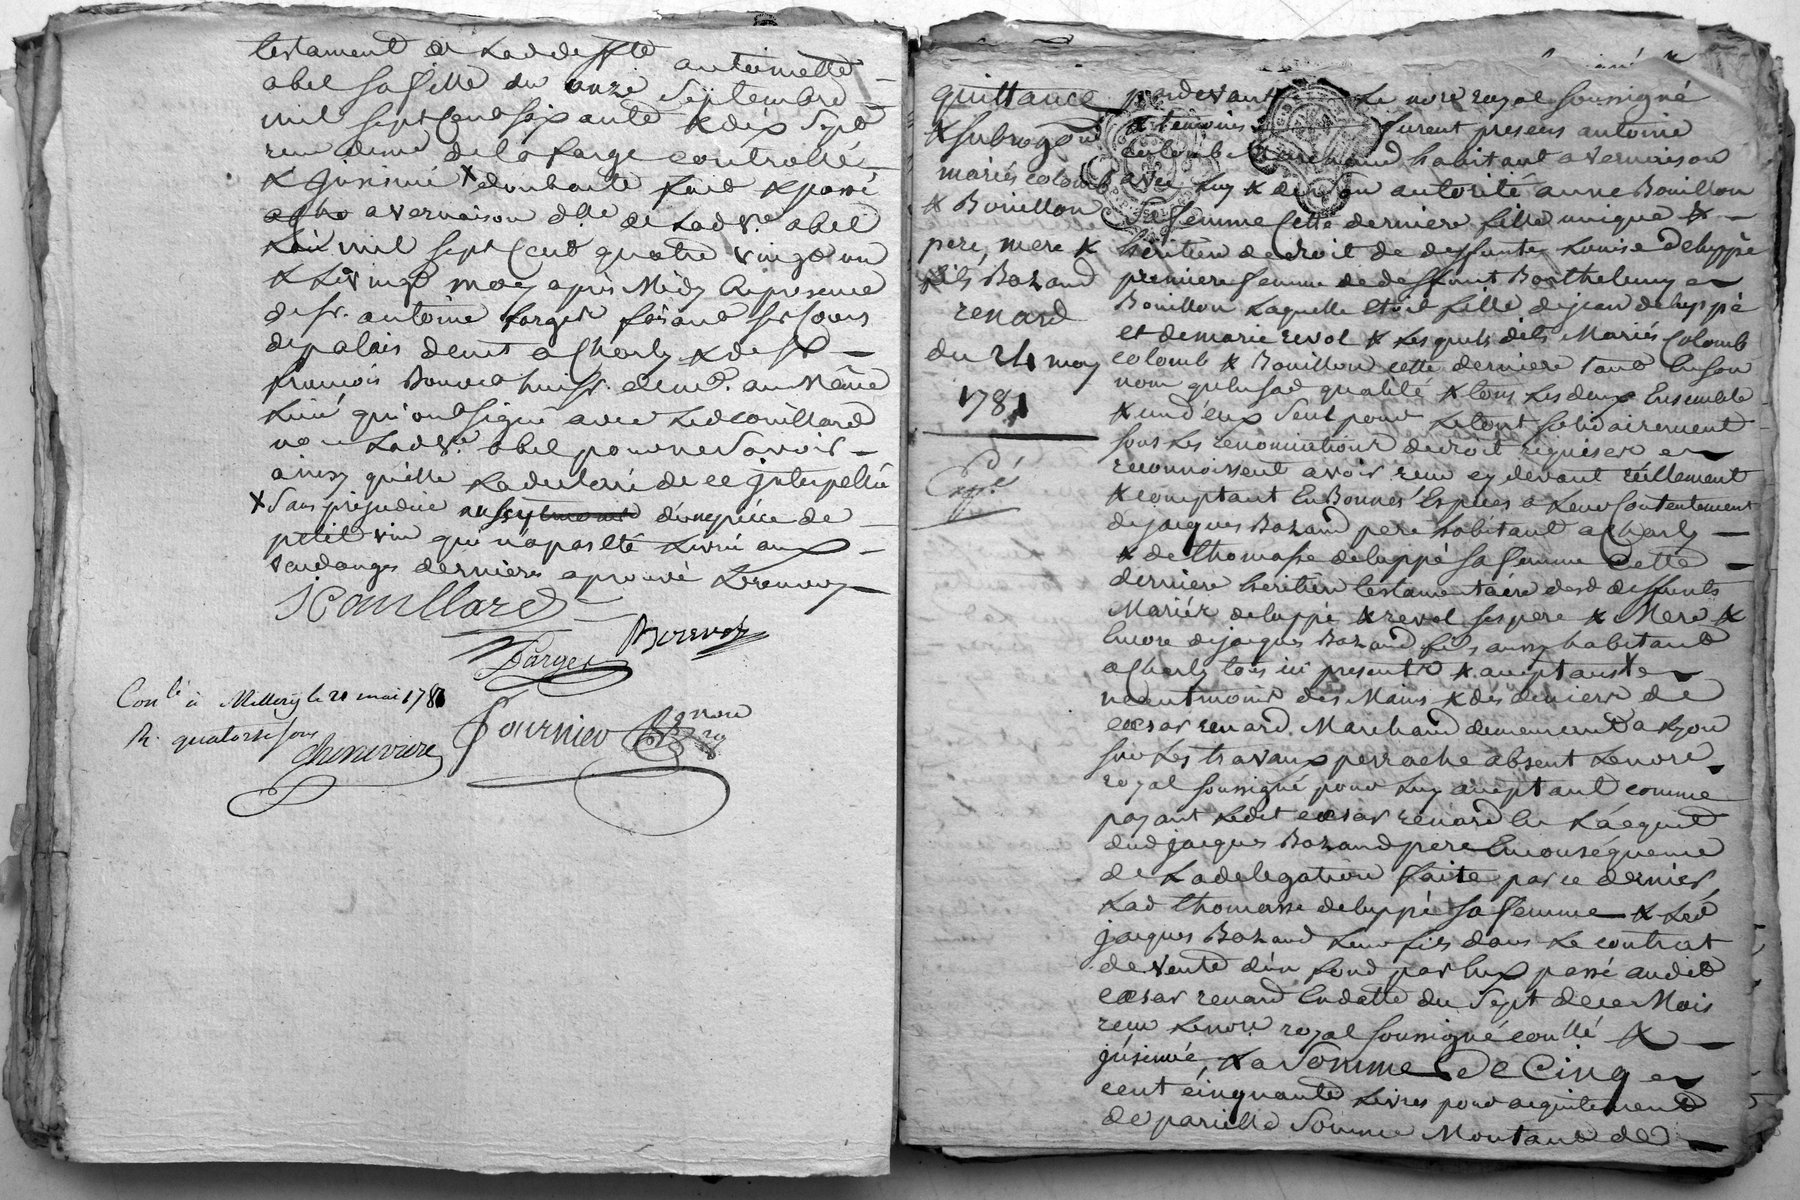 testament de Lad deffte antoinette
abel sa fille du onze Septembre
mil sept Cent soixante & dix sept
reçu de me de la farge controllé
& insinué x dont acte fait & passé
a vernaison de Lad ve abel
L'an mil sept Cent quatre vingt un
& Le vingt may après Midy En présence
de sr. antoine farges faisant ses Cours
de palais demt a Charly & de sr
francois Bouvea huissr. demt. au Même
Lieu qui ont signé avec Led couillard
non Lad ve. abel pour ne Savoir
ainsy qu'elle L'a declaré de ce interpellée
x Sans prejudice d'une piece de
petit vin qui n'a pas eté Livré aux
vendanges dernieres aprouvé Le renvoy
J Couillard
Berevoz
Farges
Conlé à Millery le 20 mai 1781
R. quatorze sous
Chenevriere
Fournier nore
quittance
& subrogaon
mariés colomb
& Bouillon
pere, mere &
fils Bazand
renard
du 24 may
1781
Expé
pardevant Le nore royal soussigné
& temoins furent presens antoine
colomb Marchand habitant a vernaison
avec Luy & de son autorité anne Bouillon
Sa femme Cette derniere fille unique &
heritiere de droit de deffunte Louise deluppé
premiere femme de deffunt Barthelemy
Bouillon Laquelle etoit fille de jean deluppé
et de marie revol & Lesquels dits Mariés Colomb
colomb & Bouillon cette derniere tant En son
nom qu'en sad qualité & tous Les deux Ensemble
& un d'eux Seul pour Le tout solidairement
sous Les renonciations de droit requises
reconnoissent avoir reçu cy devant réellement
& comptant En Bonnes Especes a Leur Contentement
de jacques Bazand pere habitant a Charly
& de thomasse deluppé sa femme Cette
derniere heritiere testamentaire desd deffunts
Mariés deluppé & revol ses pere & Mere &
Encore de jacques Bazand fils aussy habitant
a Charly tous ici presents & acceptants
neantmoins des Mains & des deniers de
cesar renard Marchand demeurant a Lyon
sur Les travaux perrache absent Le nore
royal soussigné pour Luy acceptant comme
payant Ledit cesar renard En L'acquit
dud jacques Bazand pere En consequence
de La delegation faite par ce dernier,
Lad thomasse deluppé sa femme & Led
jacques Bazand Leur fils dans Le contrat
de vente d'un fond par Eux passé audit
cesar renard En datte du Sept de ce Mois
reçu Le nore royal soussigné conllé &
insinué, La Somme de Cinq
cent cinquante Livres pour acquittement
de pareille Somme Montant de